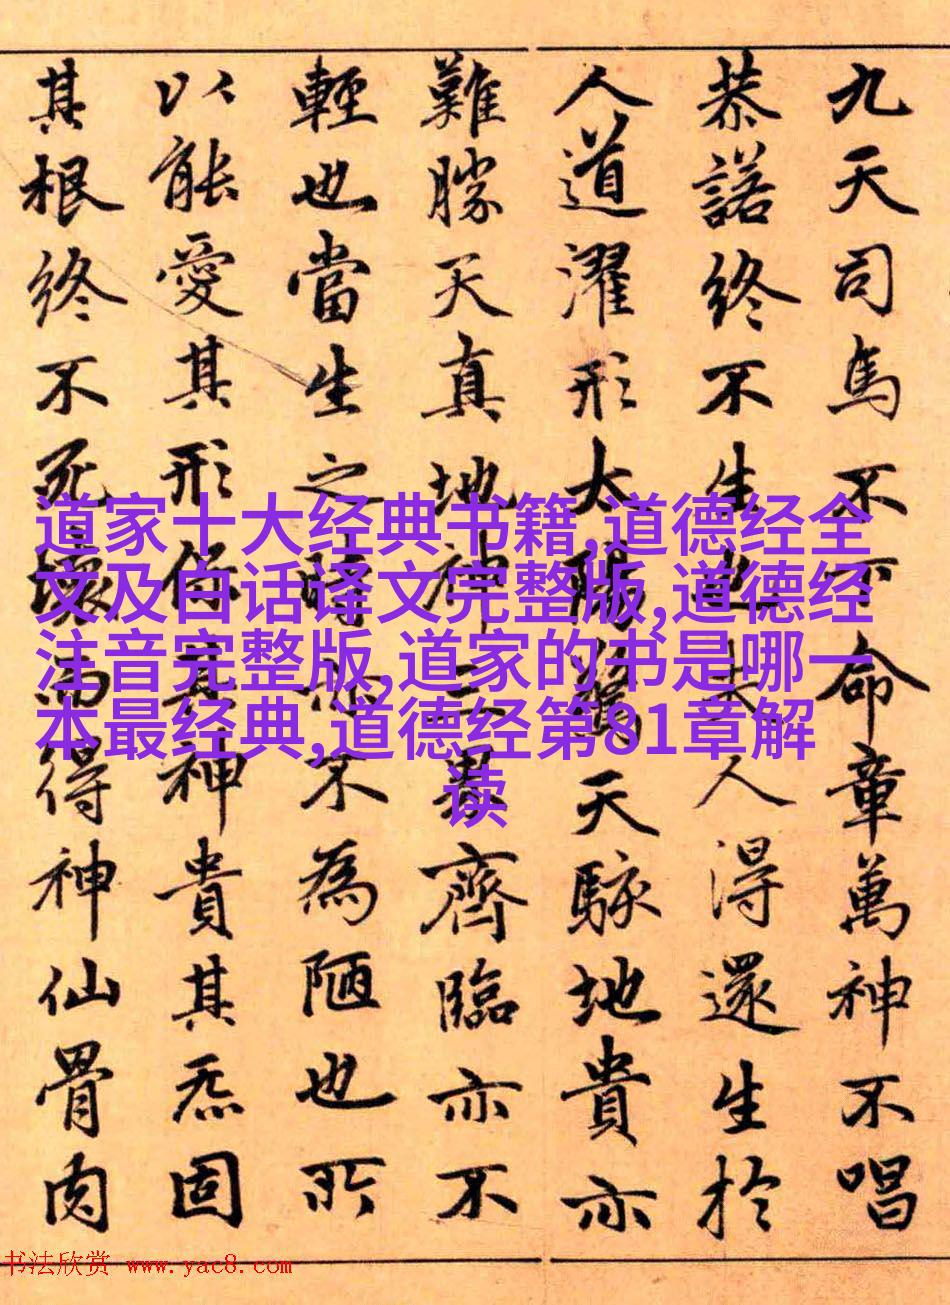 九天司馬不下命章萬神不唱
恭諾終不生也夫人得還生於
人道濯形大陽驚天駭地貴亦
難勝天真地神三界齊臨亦不
輕也當生之時亦不為陋也所
以能愛其形保其神貴其炁固
其根終不死壞而得神仙骨肉
道家十大经典书籍,道德经全
文及白话译文完整版,道德经
注音完整版,道家的书是哪一
本最经典,道德经第81章解
读
书法欣赏 www.yac8.com